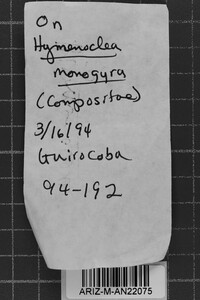 On
Hymenoclea
monogyra
(Compositae)
3/16/94
Guirocoba
94-192
ARIZ-M-AN22075